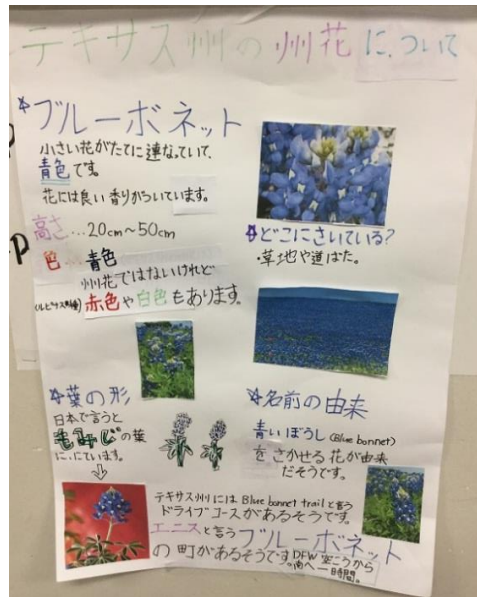 テキサス州の州花について
☆ブルーボネット
小さい花がたてに連なっていて、
青色です。
花には良い香りがついています。
高さ…20cm〜50cm
色…青色
州花ではないけれど
赤色や白色もあります。
☆どこにさいている?
・草地や道ばた。
☆葉の形
日本で言うと
の葉
ににています。
☆名前の由来
青いぼうし(Blue bonnet)
をさかせる花が由来
だそうです。
テキサス州にはBlue bonnet trailと言う
ドライブコースがあるそうです。
エニスと言うブルーボネット
の町があるそうです。DFW空こうから
南へ一時間。